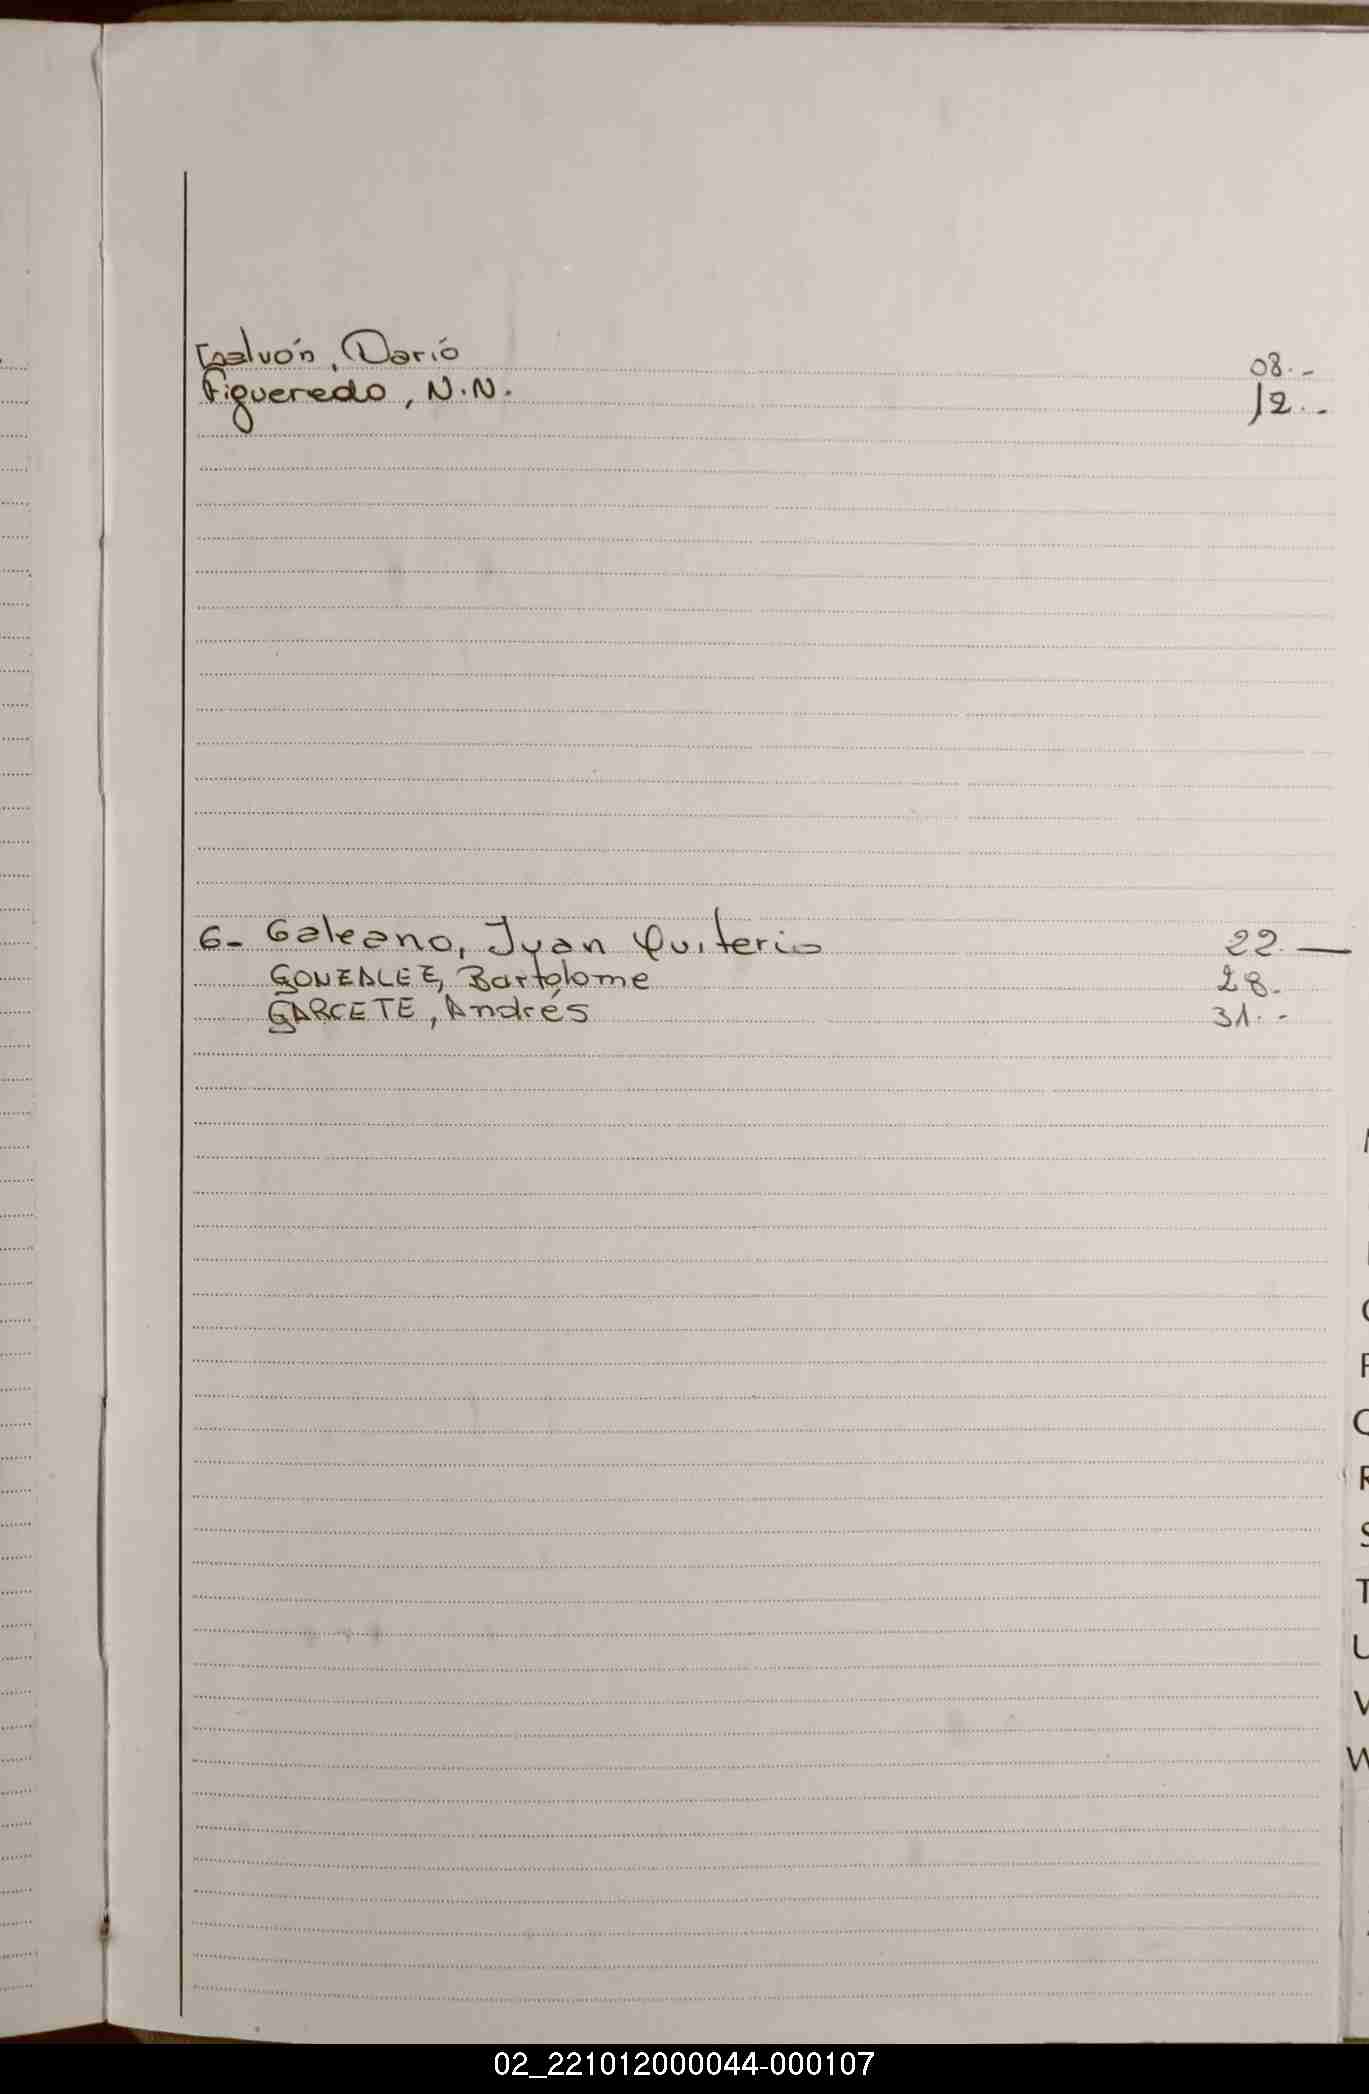 Galvón, Darió 08.-
Figueredo, N.N. 12.-
G- Galeano, Juan Quiterio 22.—
GONZALEZ, Bartolome 28.
GARCETE, Andrés 31.-
R
S
T
U
V
W
02_221012000044-000107